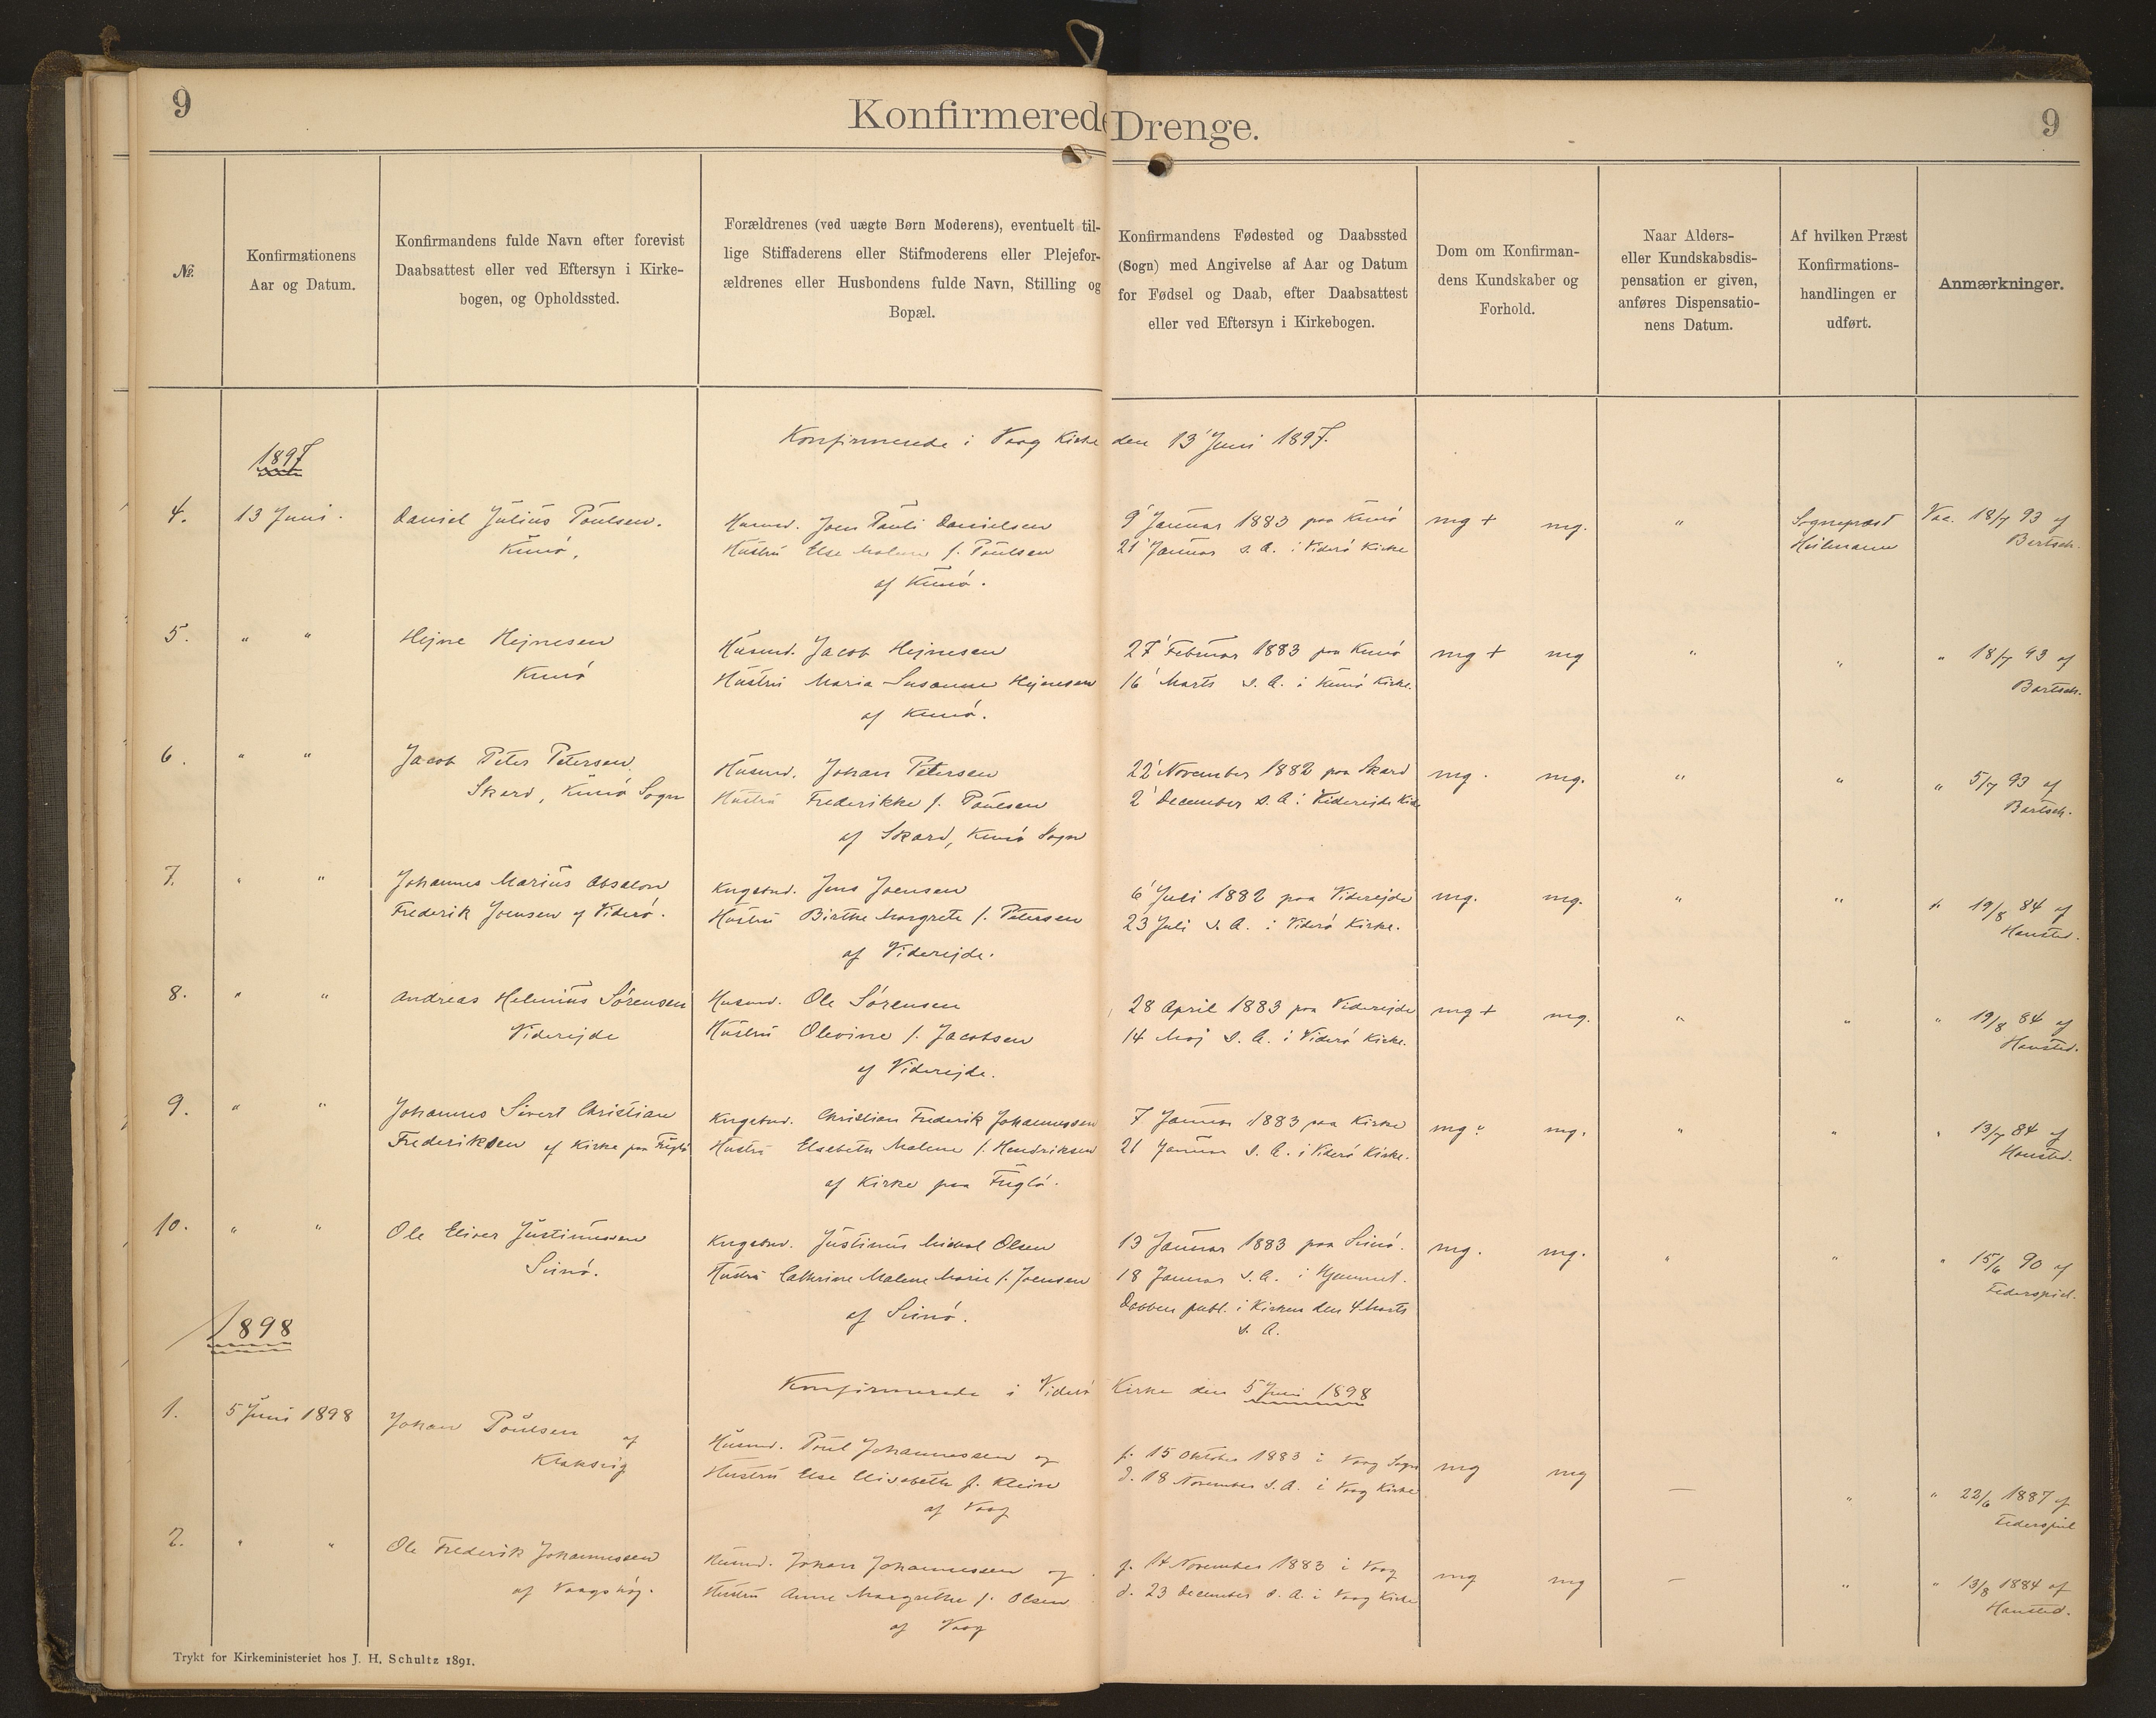 9
Konfirmerede Drenge.
9
№.
Konfirmationens
Aar og Datum.
Konfirmandens fulde Navn efter forevist
Daabsattest eller ved Eftersyn i Kirke-
bogen, og Opholdssted.
Forældrenes (ved uægte Børn Moderens), eventuelt til-
lige Stiffaderens eller Stifmoderens eller Plejefor-
ældrenes eller Husbondens fulde Navn, Stilling og
Bopæl.
Konfirmandens Fødested og Daabssted
(Sogn) med Angivelse af Aar og Datum
for Fødsel og Daab, efter Daabsattest
eller ved Eftersyn i Kirkebogen.
Dom om Konfirman-
dens Kundskaber og
Forhold.
Naar Alders-
eller Kundskabsdis-
pensation er given,
anføres Dispensatio-
nens Datum.
Af hvilken Præst
Konfirmations-
handlingen er
udført.
Anmærkninger.
1897
Konfirmerede i Vaag Kirke den 13' Juni 1897.
4. 13 Juni. Daniel Julius Poulsen. Husmd. Joen Pauli Danielsen 9' Januar 1883 paa Kunø mg + mg. " Sognepræst Vac. 18/7 93 af
Kunø, Hustru Else Malene f. Poulsen 21' Januar s. A. i Viderø Kirke Heilmann Bartsch.
af Kunø.
5. " " Hejne Hejnesen Husmd. Jacob Hejnesen 27' Februar 1883 paa Kunø mg + mg " " " 18/7 93 af
Kunø Hustru Maria Susanne Hejnesen 16' Marts s. A. i Kunø Kirke. Bartsch.
af Kunø.
6. " " Jacob Peter Petersen Husmd. Johan Petersen 22' November 1882 paa Skard mg. mg. " " " 5/7 93 af
Skard, Kunø Sogn Hustru Frederikke f. Poulsen 2' December s. A. i Viderejde Kirke Bartsch.
af Skard, Kunø Sogn
7. " " Johannes Marius Absalon Kngsbd. Jens Joensen 6' Juli 1882 paa Viderejde mg. mg. " " " 19/8 84 af
Frederik Joensen af Viderø. Hustru Birthe Margrete f. Petersen 23 Juli s. A. i Viderø Kirke. Hansted.
af Viderejde.
8. " " Andreas Helenius Sørensen Husmd. Ole Sørensen 28 April 1883 paa Viderejde mg + mg. " " " 19/8 84 af
Viderejde Hustru Olevine f. Jacobsen 14 Maj s. A. i Viderø Kirke. Hansted.
af Viderejde.
9. " " Johannes Sivert Christian Kngsbd. Christian Frederik Johannessen 7 Januar 1883 paa Kirke mg. mg. " " " 13/7 84 af
Frederiksen af Kirke paa Fuglø Hustru Elsebeth Malene f. Hendriksen 21 Januar s. A. i Viderø Kirke. Hansted.
af Kirke paa Fuglø.
10. " " Ole Eliver Justinussen Kngsbd. Justinus Mikal Olsen 13 Januar 1883 paa Svinø. mg. mg. " " " 15/6 90 af
Svinø. Hustru Cathrine Malene Marie f. Joensen 18 Januar s. A. i Hjemmet. Federspiel.
af Svinø. Daaben publ. i Kirken den 4 Marts
s. A.
1898
Konfirmerede i Viderø Kirke den 5 Juni 1898
1. 5 Juni 1898 Johan Poulsen af Husmd. Poul Johannessen og f. 15 Oktober 1883 i Vaag Sogn mg mg — " " 22/6 1887 af
Klaksvig Hustru Else Elisabeth f. Klein d. 18 November s. A. i Vaag Kirke Federspiel
af Vaag
2. " " Ole Frederik Johannessen Husmd. Johan Johannessen og f. 14 November 1883 i Vaag mg mg — " " 13/8 1884 af
af Vaagshøj. Hustru Anne Margrethe f. Olsen d. 23 December s. A. i Vaag Kirke Hansted.
af Vaag
Trykt for Kirkeministeriet hos J. H. Schultz 1891.